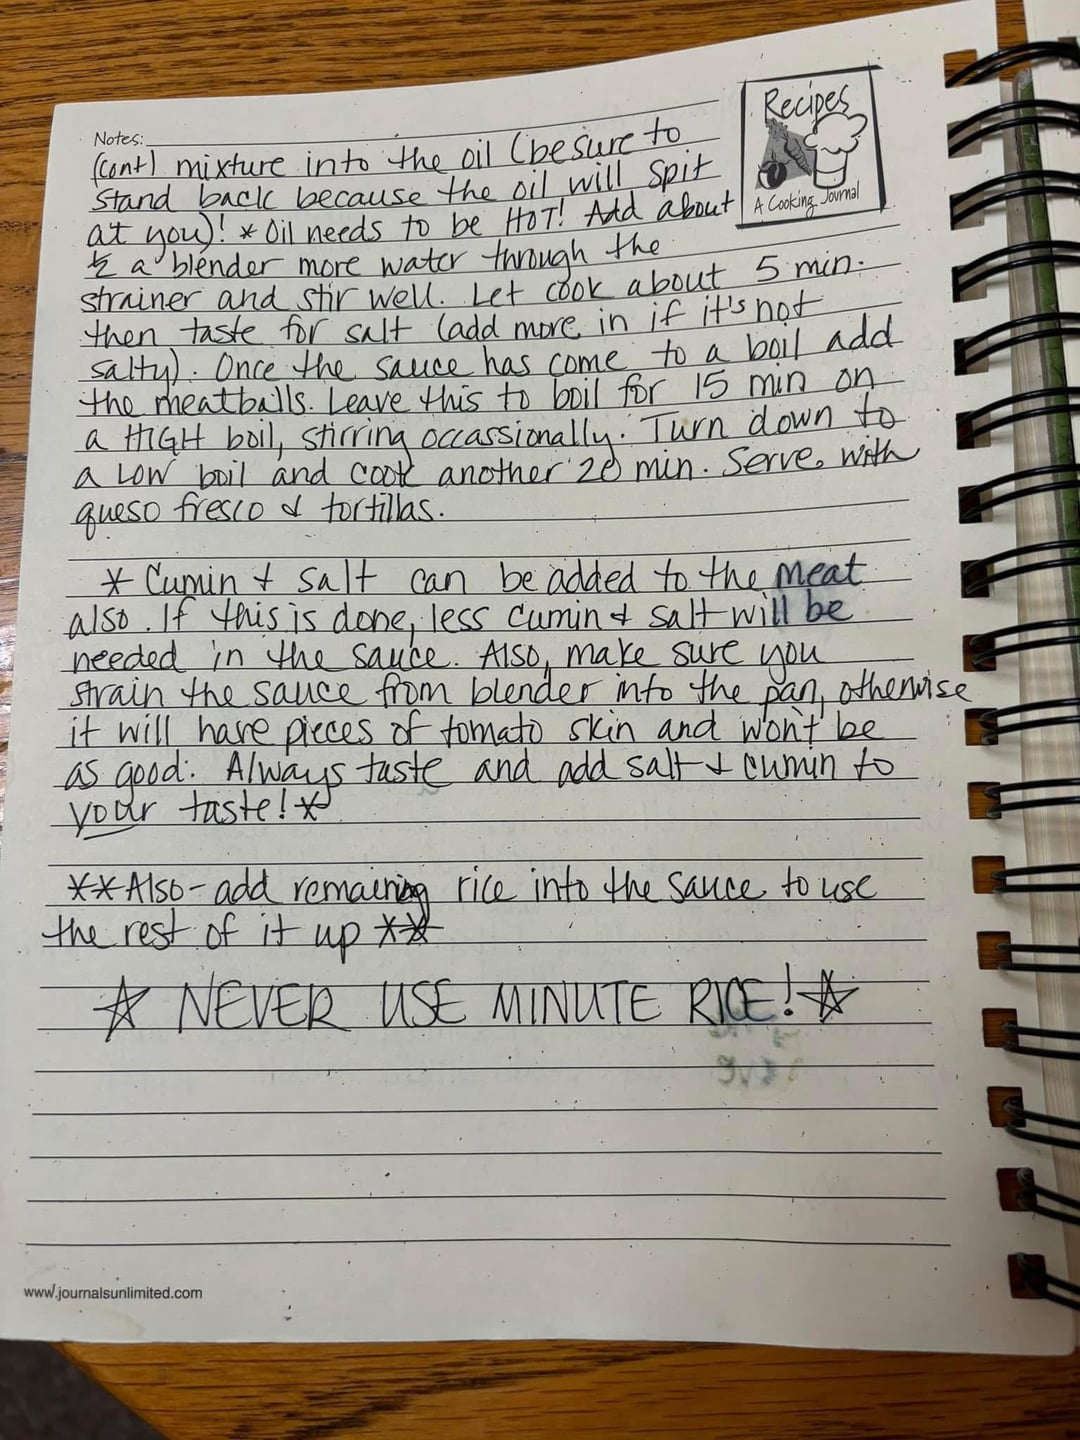 Recipes
A Cooking Journal
Notes:
(cont) mixture into the oil (be sure to
stand back because the oil will spit
at you)! * Oil needs to be HOT! Add about
½ a blender more water through the
strainer and stir well. Let cook about 5 min.
then taste for salt (add more in if it's not
salty). Once the sauce has come to a boil add
the meatballs. Leave this to boil for 15 min on
a HIGH boil, stirring occassionally. Turn down to
a LOW boil and cook another 20 min. Serve with
queso fresco & tortillas.
* Cumin & salt can be added to the meat
also. If this is done, less cumin & salt will be
needed in the sauce. Also, make sure you
strain the sauce from blender into the pan, otherwise
it will have pieces of tomato skin and won't be
as good. Always taste and add salt & cumin to
your taste! *
**Also - add remaining rice into the sauce to use
the rest of it up **
☆ NEVER USE MINUTE RICE! ☆
www.journalsunlimited.com